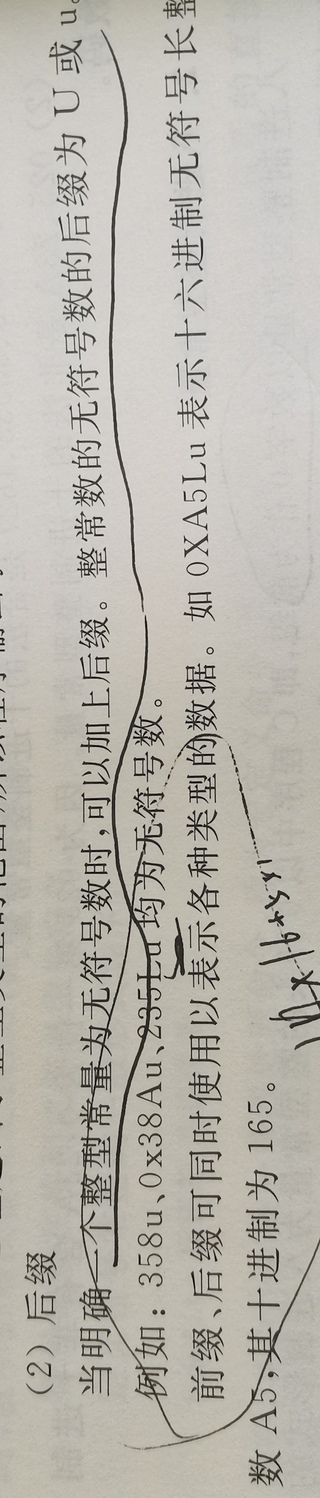 (2) 后缀
当明确一个整型常量为无符号数时,可以加上后缀。整常数的无符号数的后缀为 U 或 u。
例如：358u、0x38Au、235Lu 均为无符号数。
前缀、后缀可同时使用以表示各种类型的数据。如 0XA5Lu 表示十六进制无符号长整
数 A5,其十进制为 165。